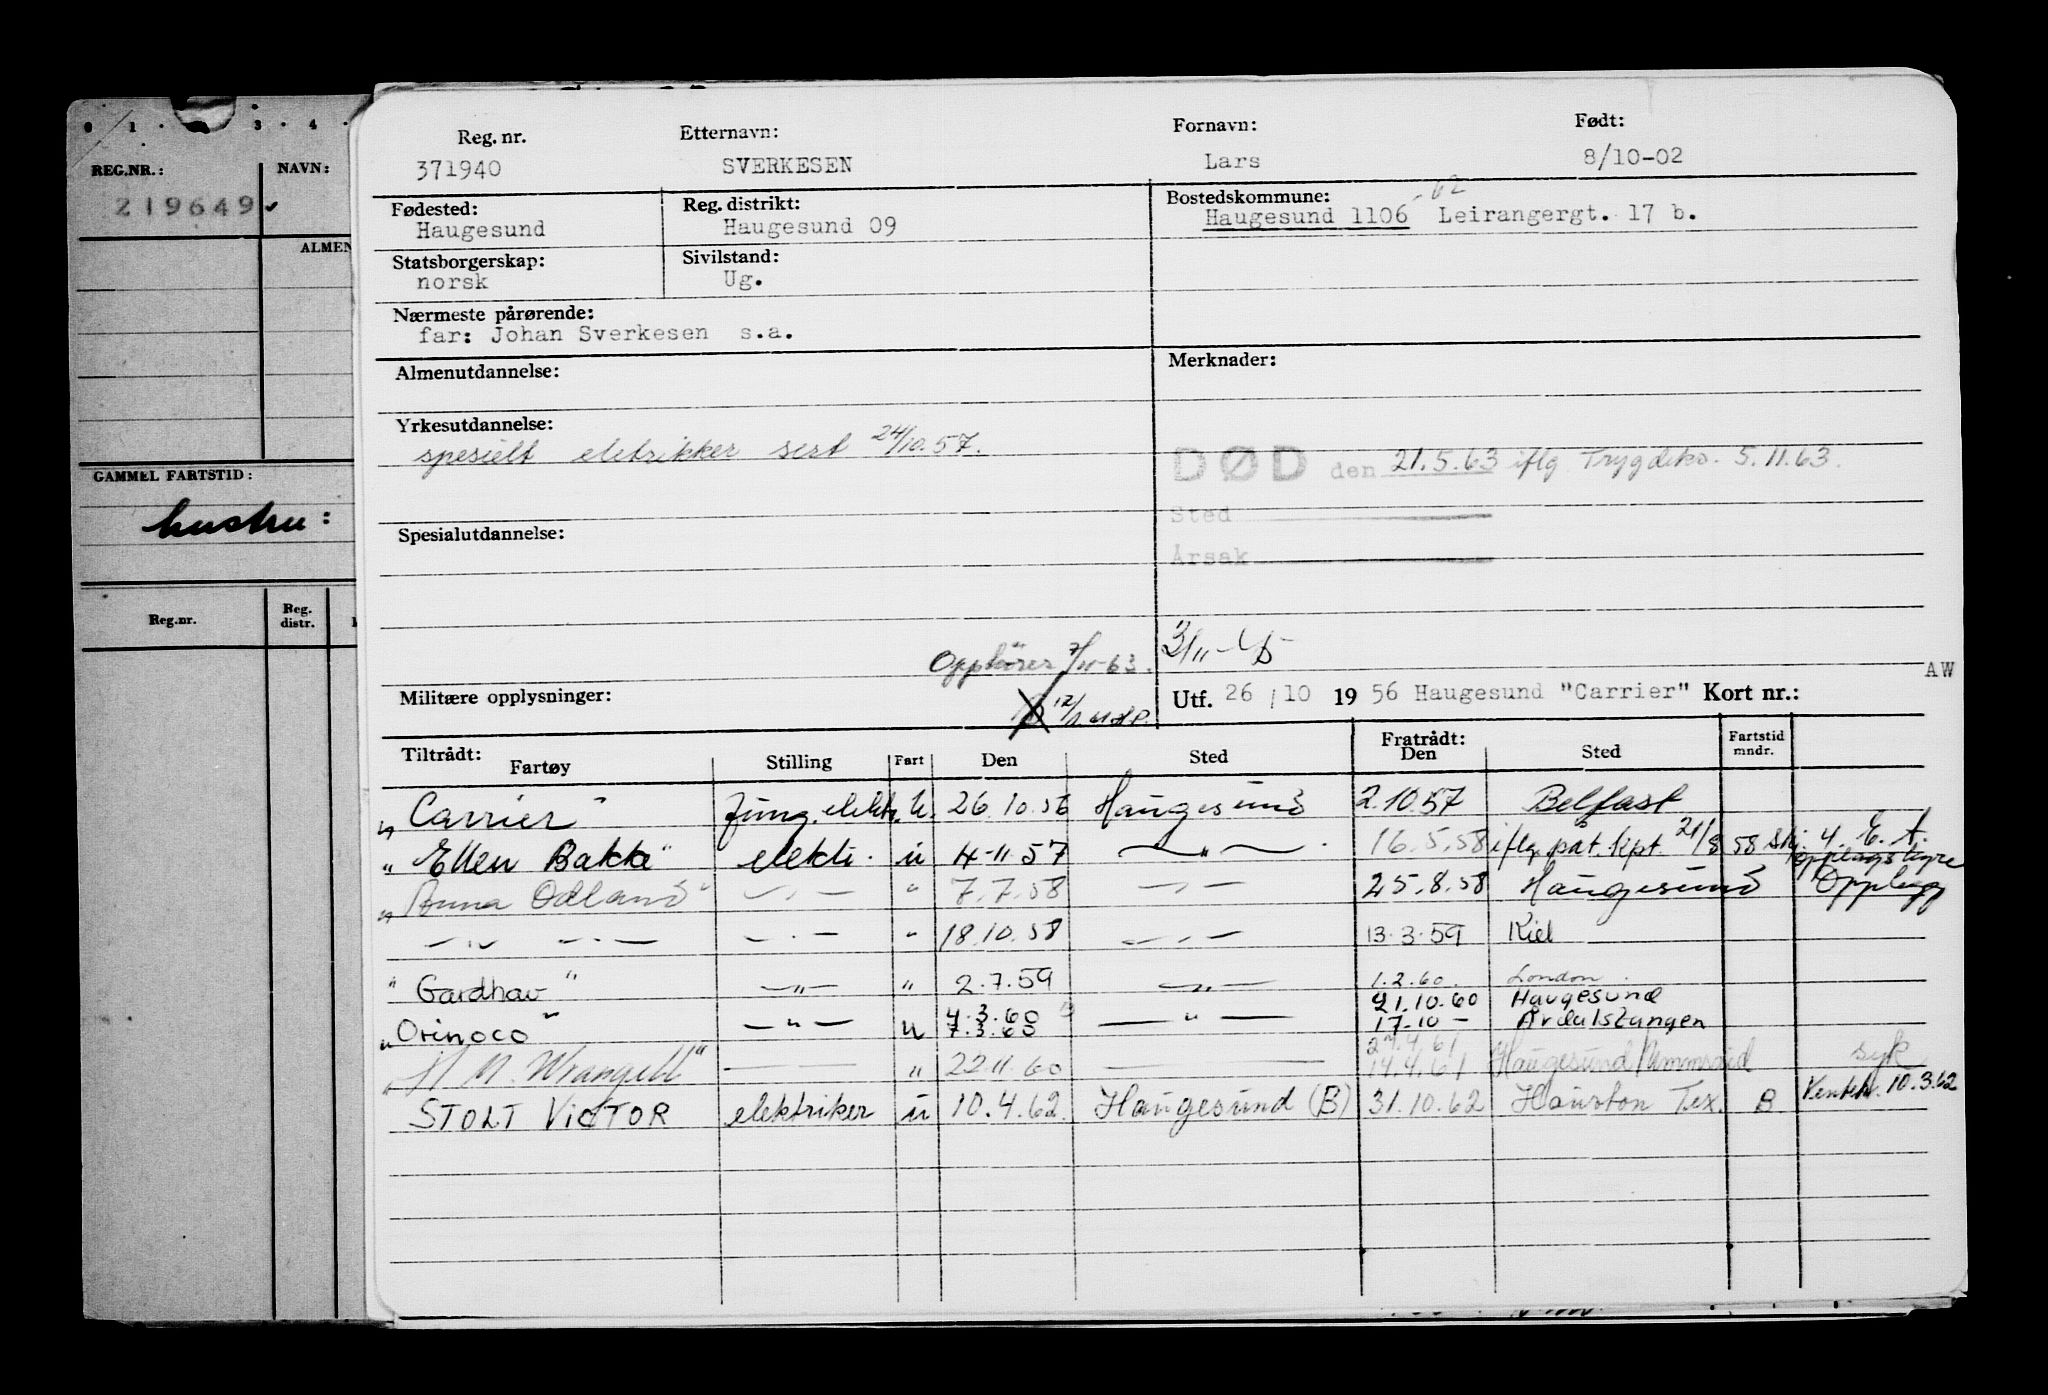 0 1 . 3 . 4 .
REG.NR.: NAVN:
219649
ALMEN
GAMMEL FARTSTID:
hustru:
Reg.nr. Reg. distr.
Reg. nr. Etternavn: Fornavn: Født:
371940 SVERKESEN Lars 8/10-02
Fødested: Reg. distrikt: Bostedskommune: -62
Haugesund Haugesund 09 Haugesund 1106 Leirangergt. 17 b.
Statsborgerskap: Sivilstand:
norsk Ug.
Nærmeste pårørende:
far: Johan Sverkesen s.a.
Almenutdannelse: Merknader:
Yrkesutdannelse:
spesielt eletrikker sert 24/10.57.
DØD den 21.5.63 iflg Trygdeko. 5.11.63.
Sted
Spesialutdannelse:
Årsak
Opphører 7/11-63.
Militære opplysninger:
Utf. 26/10 1956 Haugesund "Carrier" Kort nr.: AW
Tiltrådt: Fratrådt: Fartstid mndr.
Fartøy Stilling Fart Den Sted Den Sted
"Carrier" fung. elektr. u. 26.10.56 Haugesund 2.10.57 Belfast
"Ellen Bakke" elektr. u 4-11 57 — " — 16.5.58 iflg. påt. kpt. 21/8 58 Skj. 4. E. A.
opplagstyre
"Anna Odland" — " — " 7.7.58 — " — 25.8.58 Haugesund Opplegg
— " — — " — — " — " 18.10.58 — " — 13.3.59 Kiel
"Gardhav" — " — " 2.7.59 — " — 1.2.60. London.
4.3.60 21.10.60 Haugesund
"Orinoco" — " — u 7.3.60 — " — 17.10 - Årdalstangen
27.4.61
"H M. Wrangell" — — " 22.11.60 — 14.4.61 Haugesund syk
STOLT VICTOR elektriker u 10.4.62. Haugesund (B) 31.10.62 Houston Tex. B 10.3.62